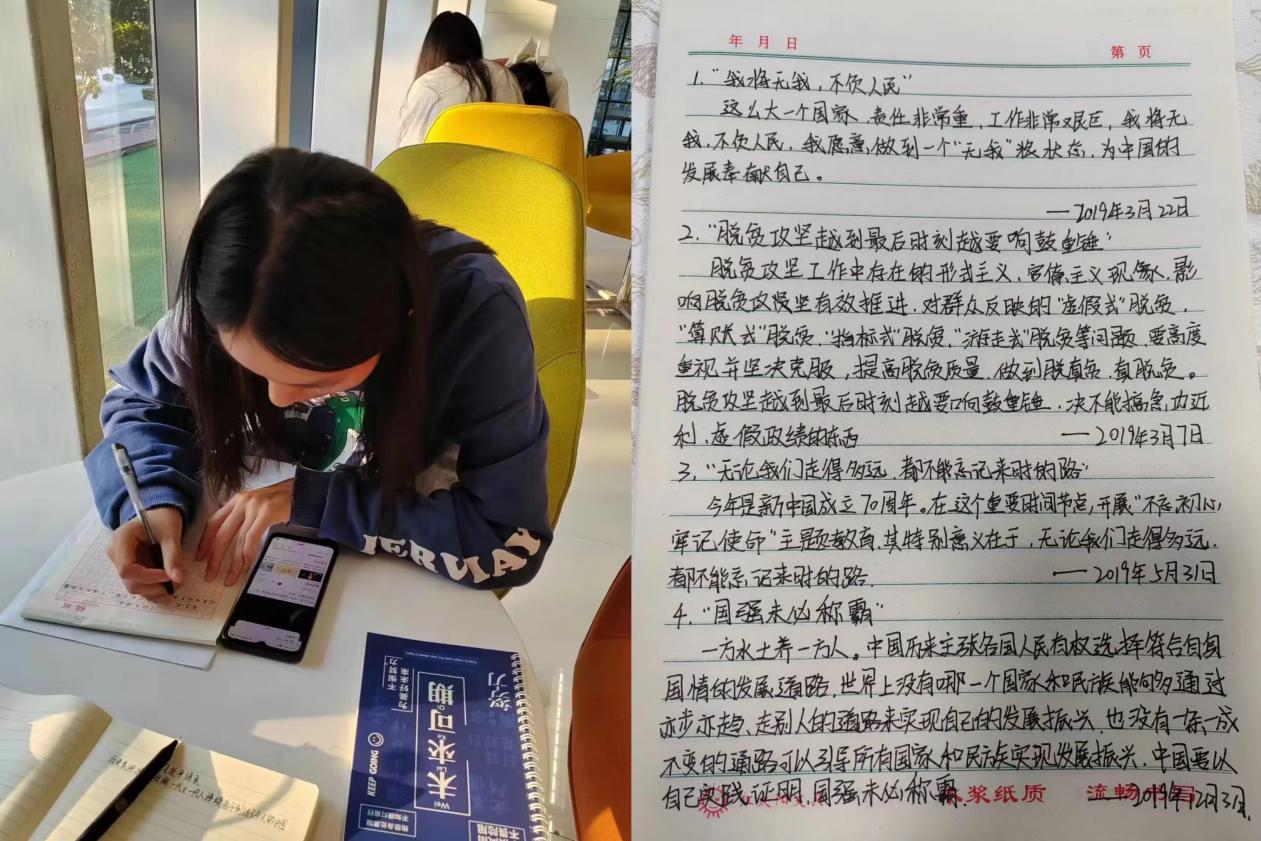 IERWAY
KEEP GOING
未来可期
Wei
Lai
Ke
Qi
努力
不負努力
年 月 日
第 页
1."我将无我，不负人民"
这么大一个国家，责任非常重，工作非常艰巨，我将无
我，不负人民，我愿意做到一个"无我"的状态，为中国的
发展奉献自己。
—2019年3月22日
2."脱贫攻坚越到最后时刻越要响鼓重锤"
脱贫攻坚工作中存在的形式主义，官僚主义现象，影
响脱贫攻坚有效推进，对群众反映的"虚假式"脱贫，
"算账式"脱贫，"指标式"脱贫，"游走式"脱贫等问题，要高度
重视并坚决克服，提高脱贫质量，做到脱真贫，真脱贫。
脱贫攻坚越到最后时刻越要响鼓重锤，决不能搞急功近
利，虚假政绩的东西 —2019年3月7日
3."无论我们走得多远，都不能忘记来时的路"
今年是新中国成立70周年。在这个重要时间节点，开展"不忘初心，
牢记使命"主题教育，其特别意义在于，无论我们走得多远，
都不能忘记来时的路。 —2019年5月31日
4."国强未必称霸"
一方水土养一方人。中国历来主张各国人民有权选择符合自身
国情的发展道路，世界上没有哪一个国家和民族能够通过
亦步亦趋、走别人的道路来实现自己的发展振兴，也没有一条一成
不变的道路可以引导所有国家和民族实现发展振兴，中国要以
自己实践证明，国强未必称霸。 —2019年12月3日
浆纸质 流畅书写